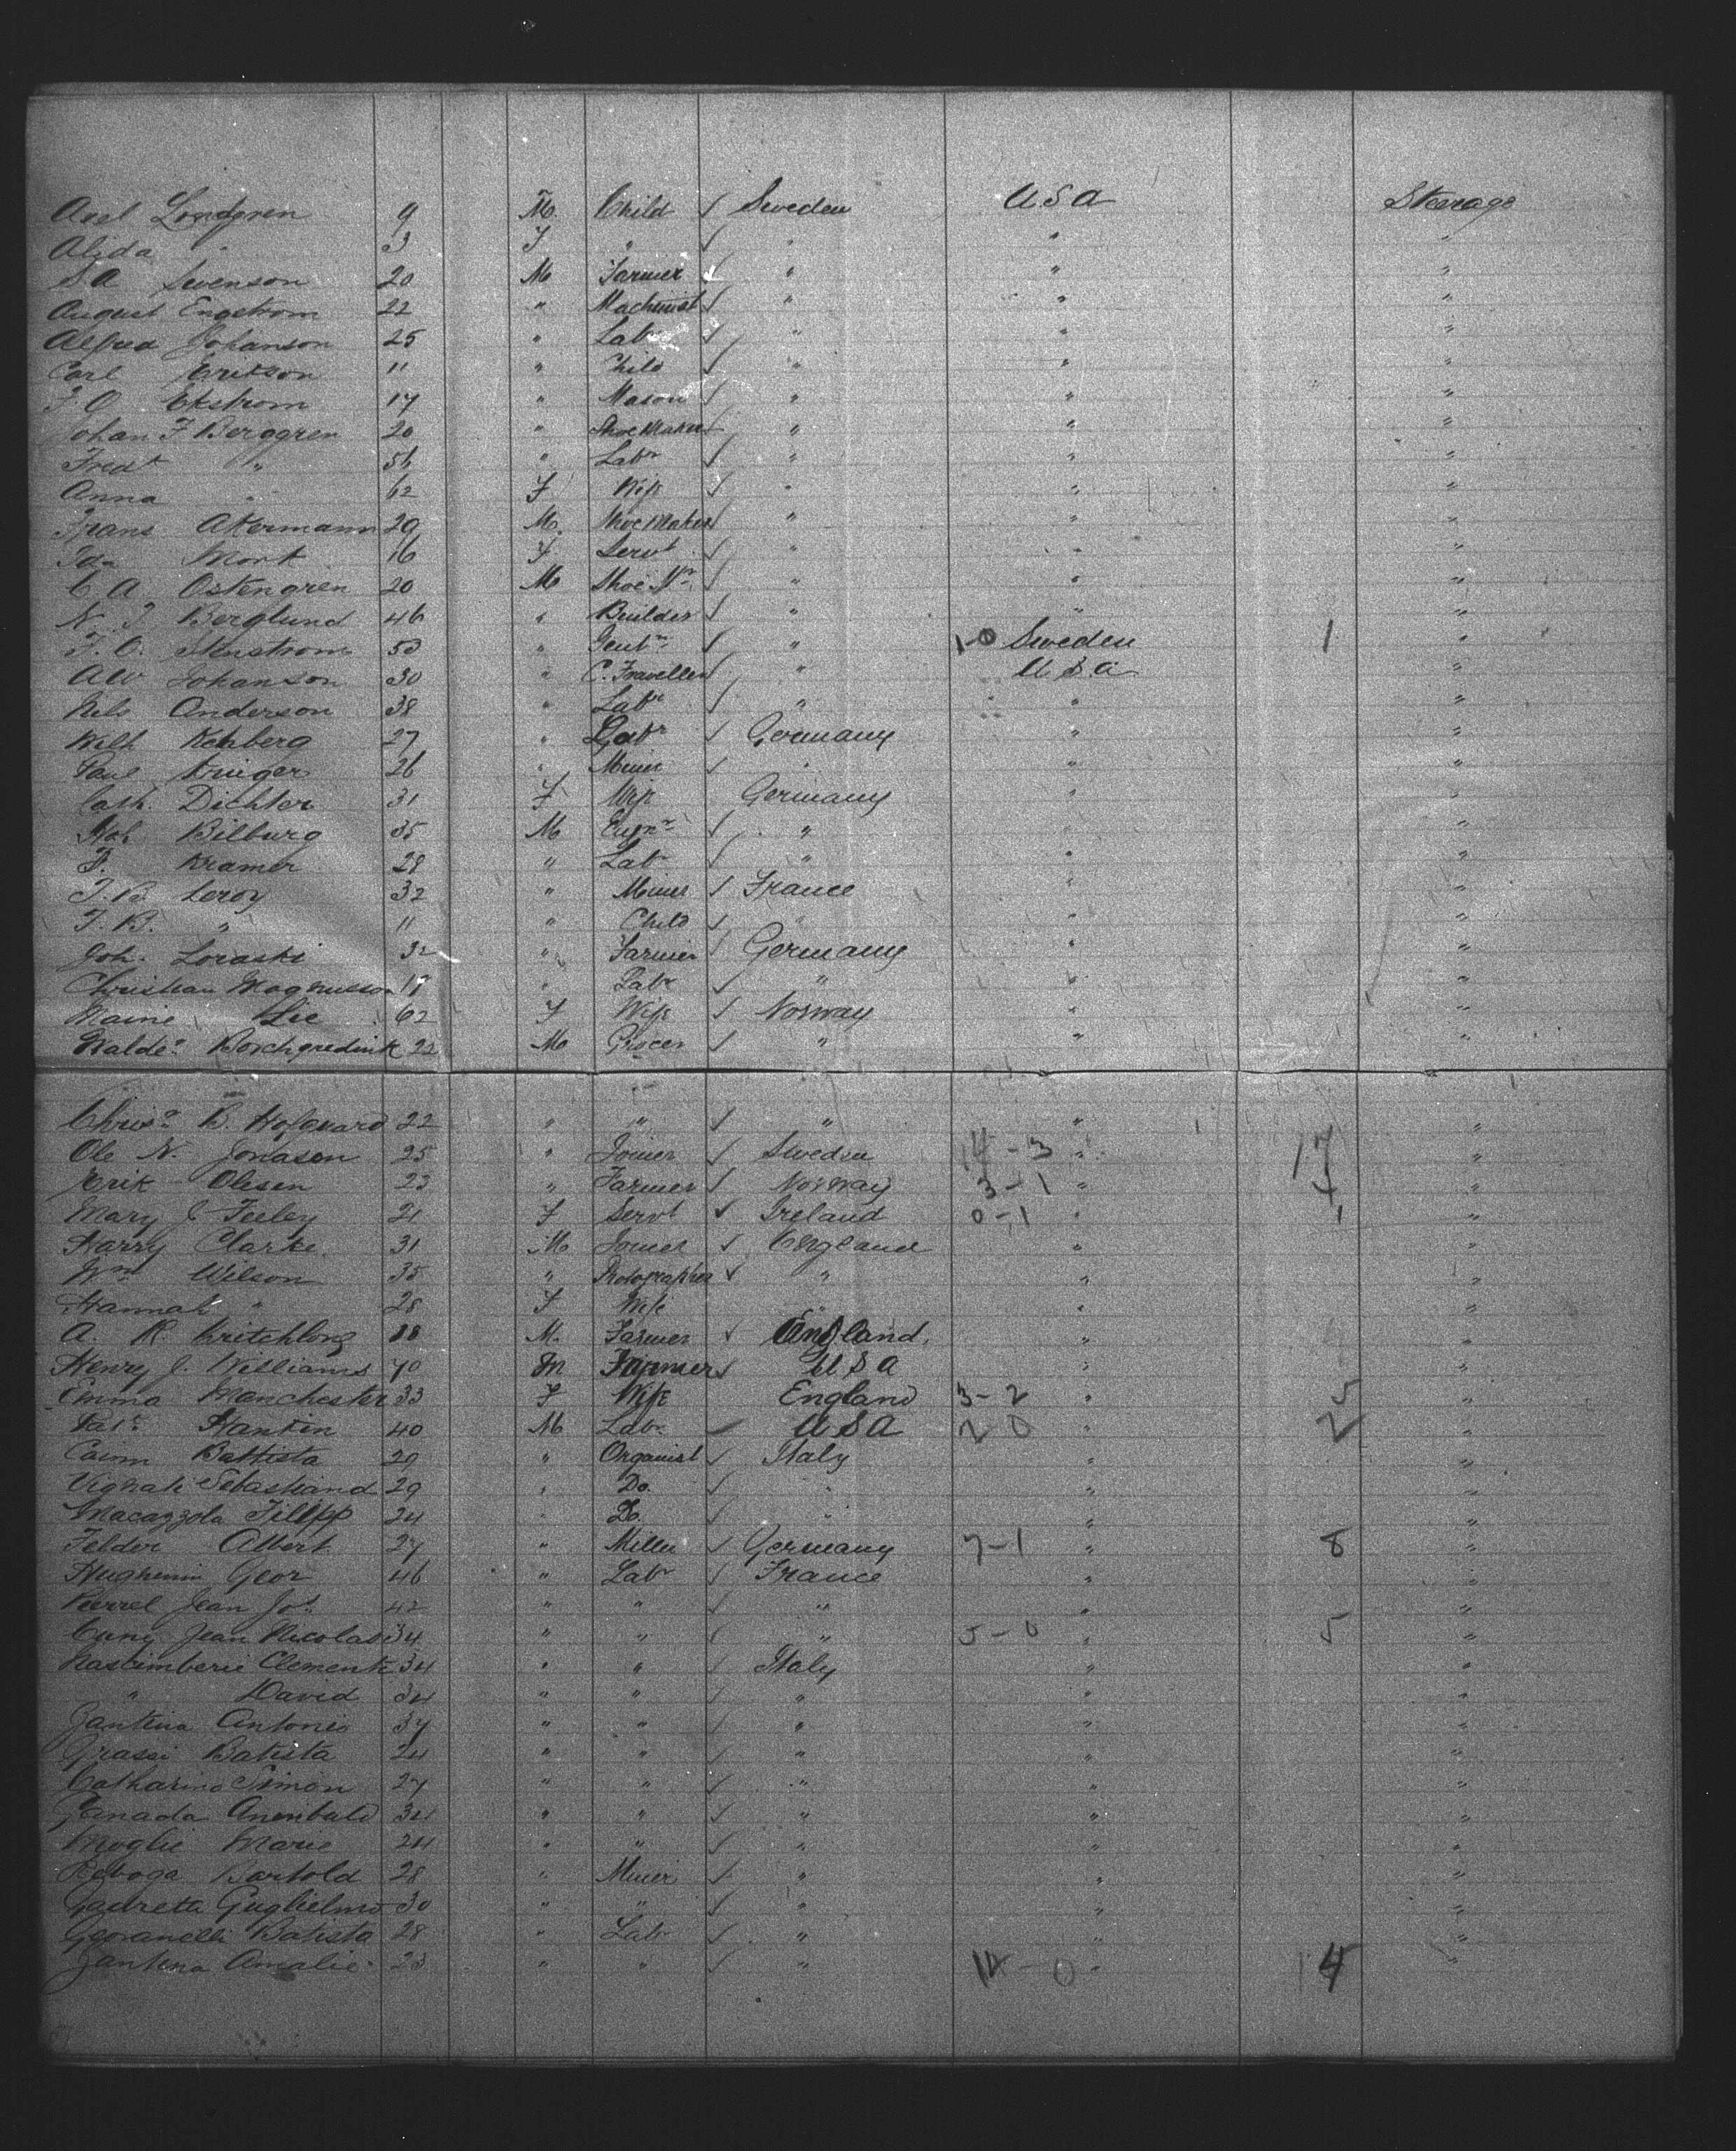 Axel Londgren 9 M. Child ✓ Sweden U.S.A Steerage
Alida " 3 F " ✓ " " "
S A Swenson 20 M Farmer ✓ " " "
August Engstrom 22 " Machinist ✓ " " "
Alfred Johanson 25 " Labr ✓ " " "
Carl Erikson 11 " Child ✓ " " "
F O Ekstrom 17 " Mason ✓ " " "
Johan F Berggren 20 " Shoe Maker ✓ " " "
Fredk " 56 " Labr ✓ " " "
Anna " 62 F Wife ✓ " " "
Frans Akermann 29 M. Shoe Maker ✓ " " "
Ida Mork 16 F Servt ✓ " " "
C A Ostengren 20 M Shoe Mr ✓ " " "
N. J Berglund 46 " Builder ✓ " " "
F. O. Stenstrom 53 " Gentn ✓ " 1-0 Sweden 1 "
A W Johanson 30 " C. Traveller ✓ " U S a "
Nels Anderson 38 " Labr ✓ " " "
Wilh Kehberg 27 " Labr ✓ Germany " "
Paul Kruger 26 " Miner ✓ " " "
Cath. Dichter 31 F Wife Germany " "
Joh Bilburg 35 M Engnr ✓ " " "
F. Kramer 28 " Labr ✓ " " "
J. B. Leroy 32 " Miner ✓ France " "
J. B. " 11 " Child ✓ " " "
Joh. Loraski 32 " Farmer ✓ Germany " "
Christian Magnusson 17 " Labr ✓ " " "
Maine Lie 62 F Wife ✓ Norway " "
Walder Borchgredink 22 M Grocer ✓ " " "
Chrisn B. Hofgaard 22 " " ✓ " " "
Ole N. Jonasen 25 " Joiner ✓ Sweden 14-3 " 17 "
Erik Olesen 23 " Farmer ✓ Norway 3-1 " 4 "
Mary J. Feeley 21 F Servt ✓ Ireland 0-1 " 1 "
Harry Clarke. 31 M Joiner ✓ England " "
Wm Wilson 35 " Photographer ✓ " " "
Hannah " 28 F Wife " " "
A. R. Kritchlong 28 M. Farmer ✓ England. " "
Henry J. Williams 40 M Farmer ✓ U S A " "
Emma Manchester 33 F Wife England 3-2 " 5 "
Patk Hankin 40 M Labr ✓ U S A 2 0 " 2 "
Caim Battista 29 " Organist ✓ Italy " "
Vignati Sebastiand 29 " Do. ✓ " " "
Macazzola Filipp 24 " Do. ✓ " " "
Felder Albert 27 " Miller ✓ Germany 7-1 " 8 "
Hughenin Geor 46 " Labr ✓ France " "
Pierrel Jean Jos 42 " " ✓ " " "
Cuny Jean Nicolas 34 " " ✓ " 5-0 " 5 "
Nascimberie Clemente 34 " " ✓ Italy " "
" David 34 " " ✓ " " "
Jantina Antonio 37 " " ✓ " " "
Grassi Batista 24 " " ✓ " " "
Catharino Simon 27 " " ✓ " " "
Granada Anenbald 34 " " ✓ " " "
Moglie Marie 24 " " ✓ " " "
Reboga Bartold 28 " Miner ✓ " " "
Gadreta Guglielmo 30 " " ✓ " " "
Geovanelli Batista 28 " Labr ✓ " " "
Jantina Amalie 23 " " ✓ " 14-0 " 14 "